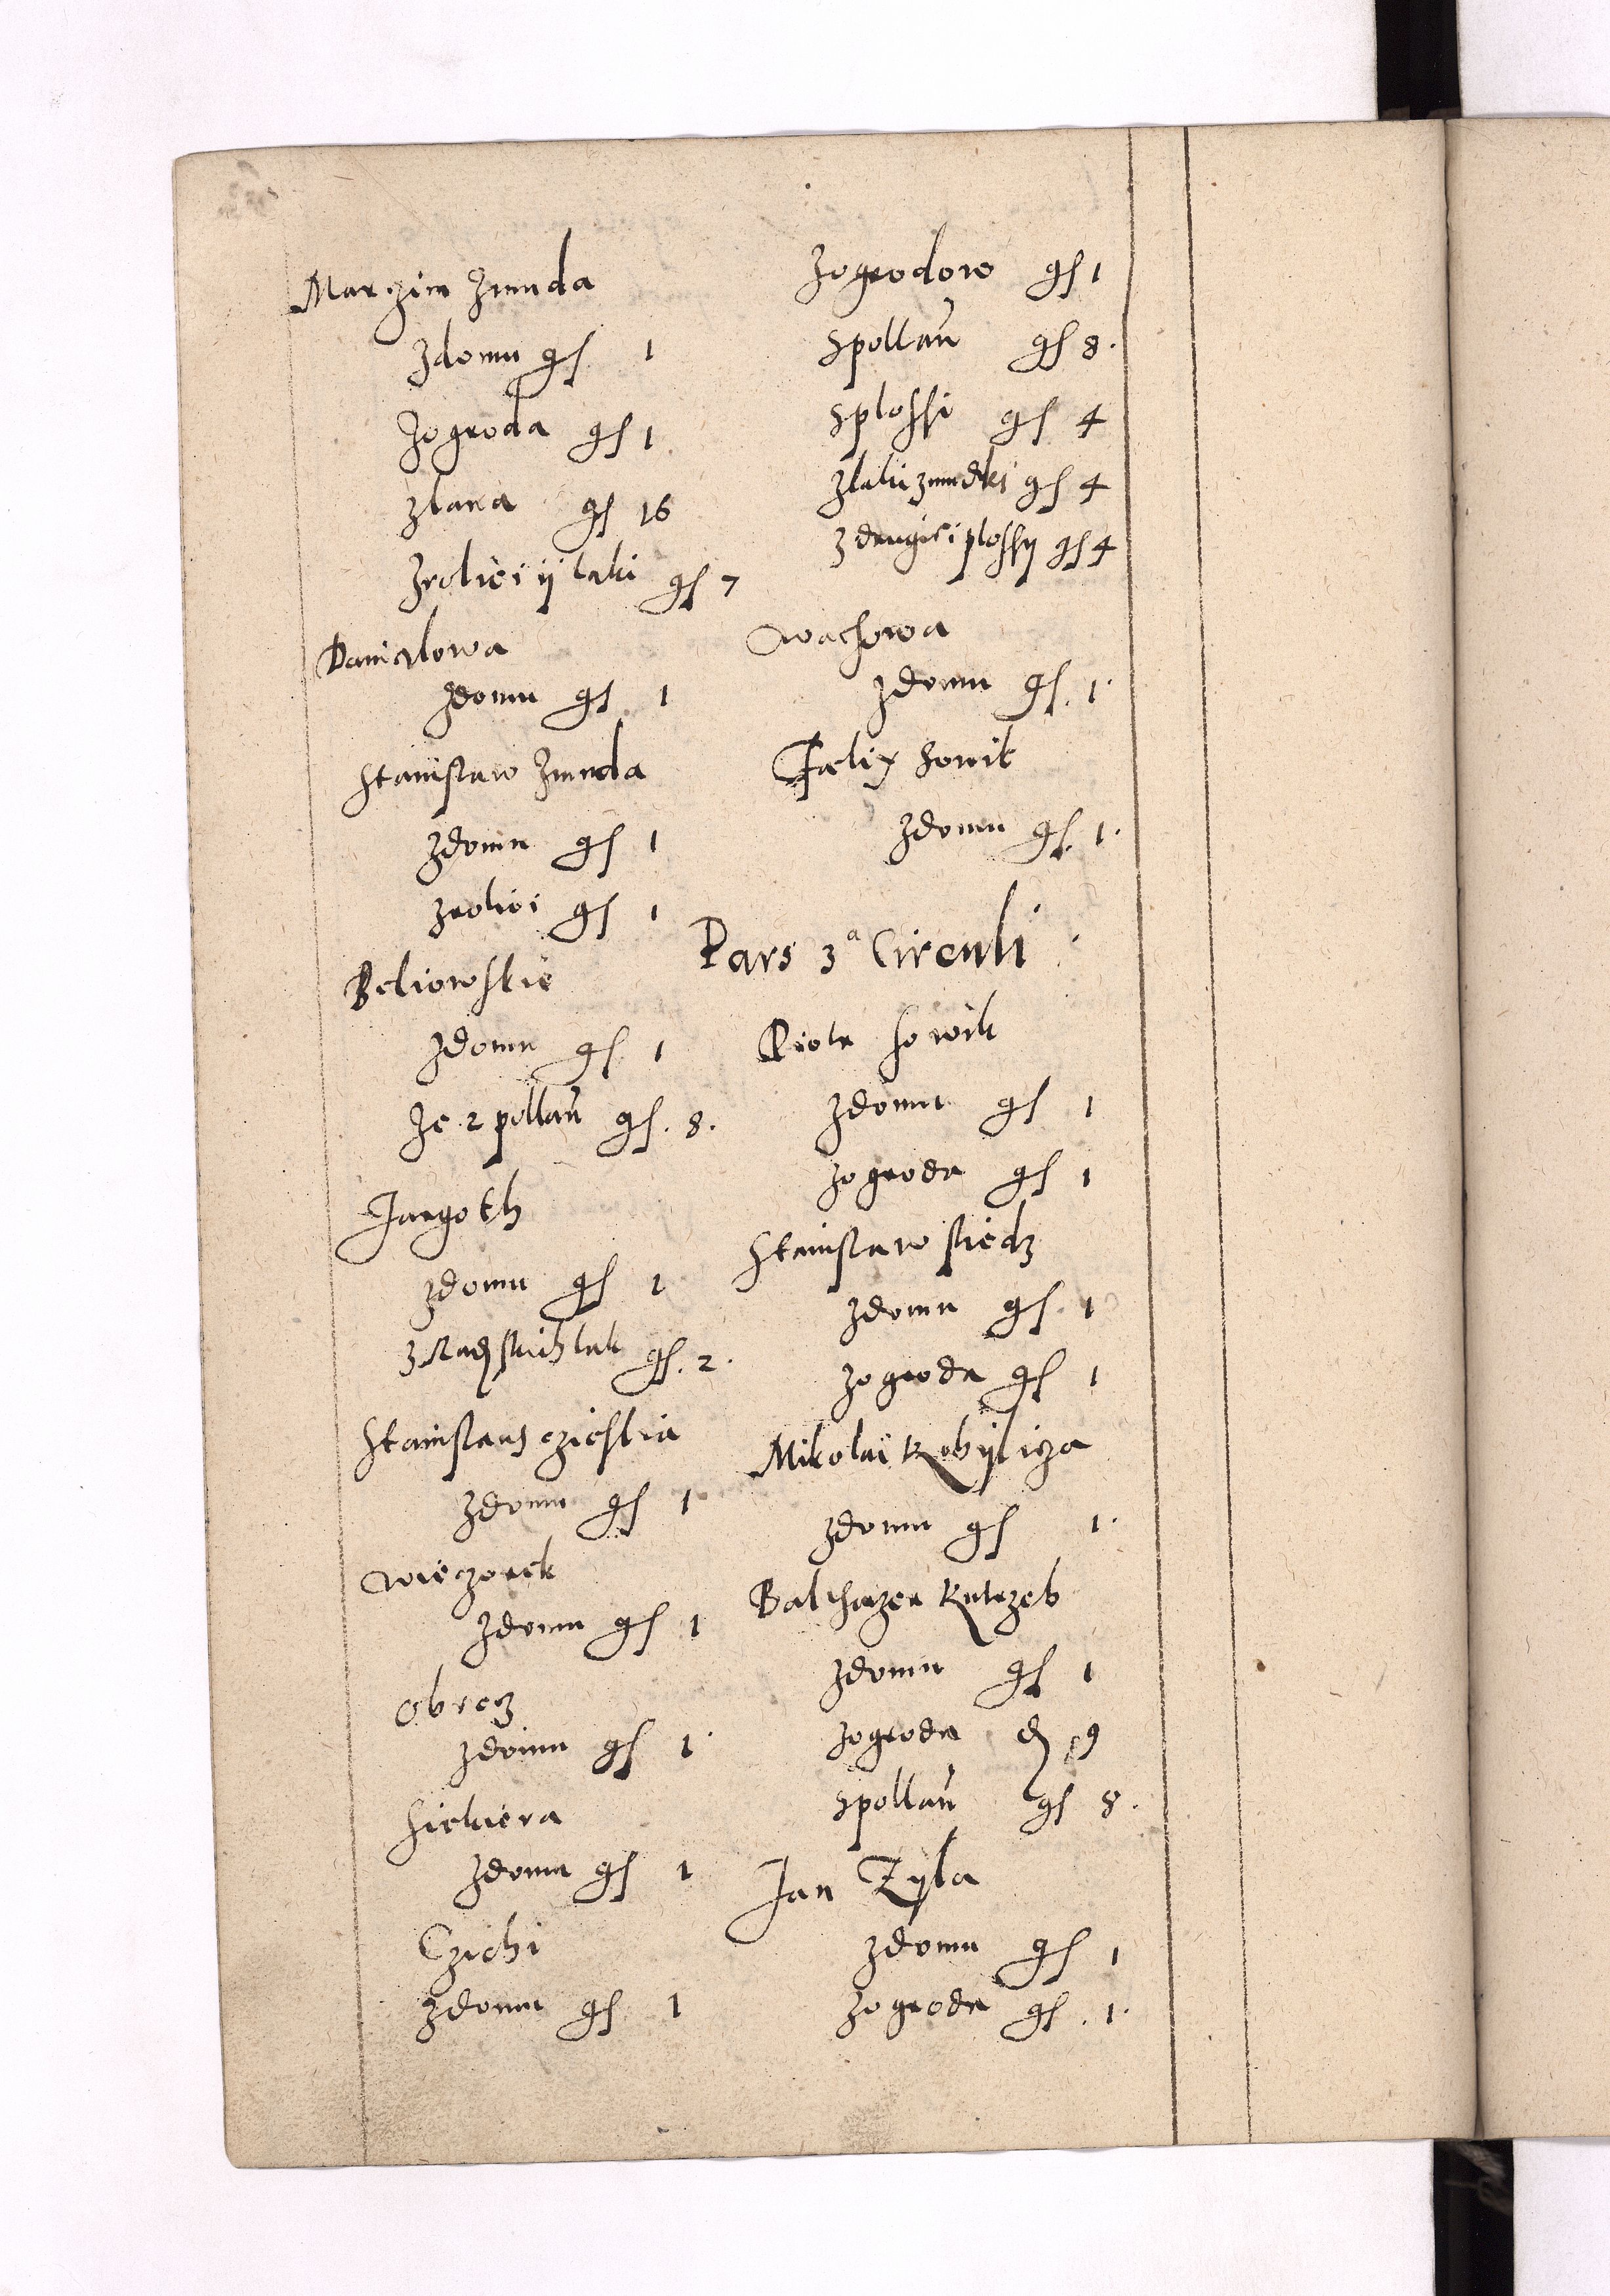 Marczin Zmuda
Zdomu gs 1
Zogroda gs 1
Zlana gs 16
Zroliei ÿ laki gs 7
Danielowa
Zdomu gs 1
Stanislaw Zmuda
Zdomu gs 1
Zroliei gs 1
Beliowskie
Zdomu gs 1
Ze 2 pollan gs. 8.
Jargoth
Zdomu gs 1
lak gs. 2.
Stanislaus
Zdomu gs 1
Wieczorek
Zdomu gs 1
Obrocz
Zdomu gs 1
Siekiera
Zdomu gs 1
Czichi
Zdomu gs 1
Zogrodow gs 1
Spollan gs 8.
Splossi gs 4
Zlaki zmudki gs 4
Z drugiei plossy gs 4
Wachowa
Zdomu gs. 1.
Faelix Sowik
Zdomu gs. 1.
Pars 3a Circuli
Piotr Sowik
Zdomu gs 1
Zogroda gs 1
Stanislaw sliedz
Zdomu gs. 1
Zogroda gs 1
Mikolai Kobÿlicza
Zdomu gs 1.
Balthazer Kutrzeb
Zdomu gs 1
Zogroda d 9
Spollan gs 8.
Jan Zÿla
Zdomu gs 1
Zogroda gs. 1.